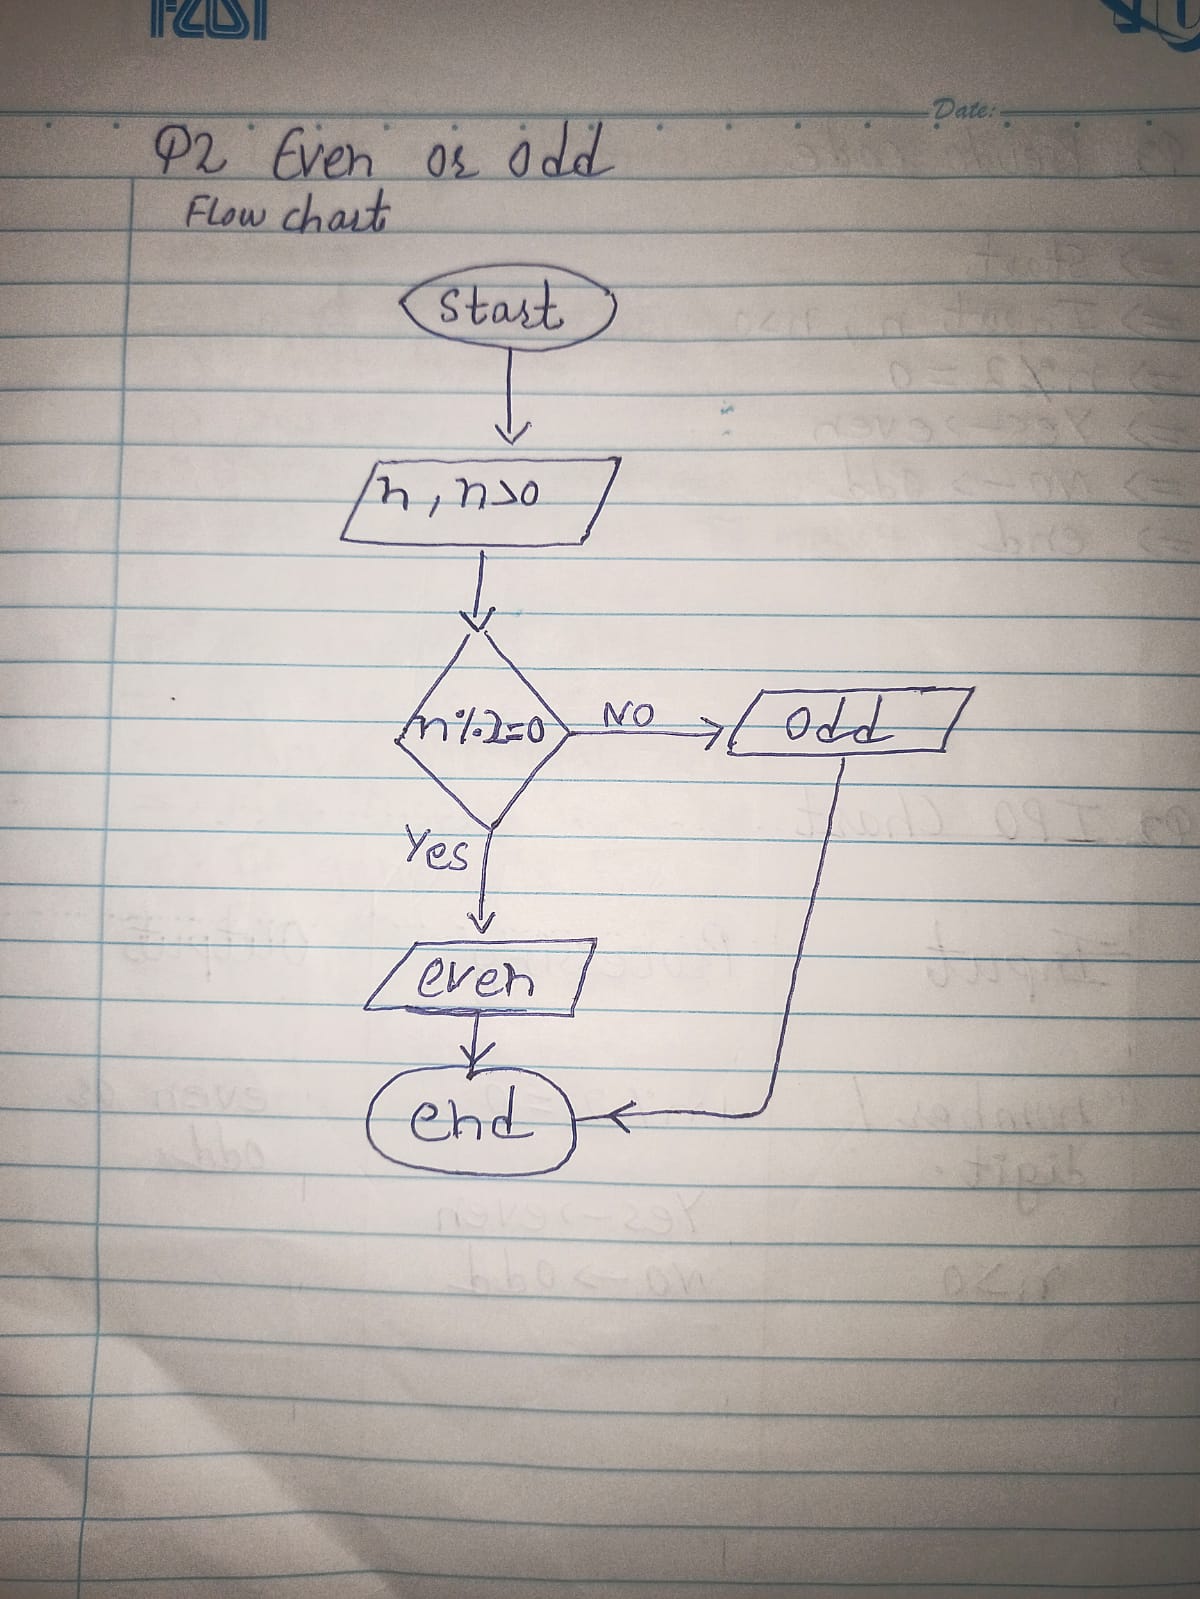 Date:
Q2 Even or odd
Flow chart
Start
n, n>0
n%2=0
NO
odd
Yes
even
end